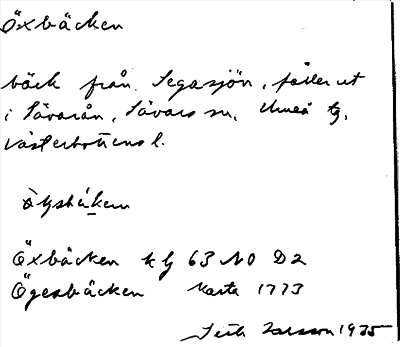 Öxbäcken
bäck från Segasjön, faller ut
i Sävarån, Sävars sn, Umeå tg,
Västerbottens l.
Öxbäcken k bj 63 NO D2
Ögesbäcken Karta 1773
Larsson 1935